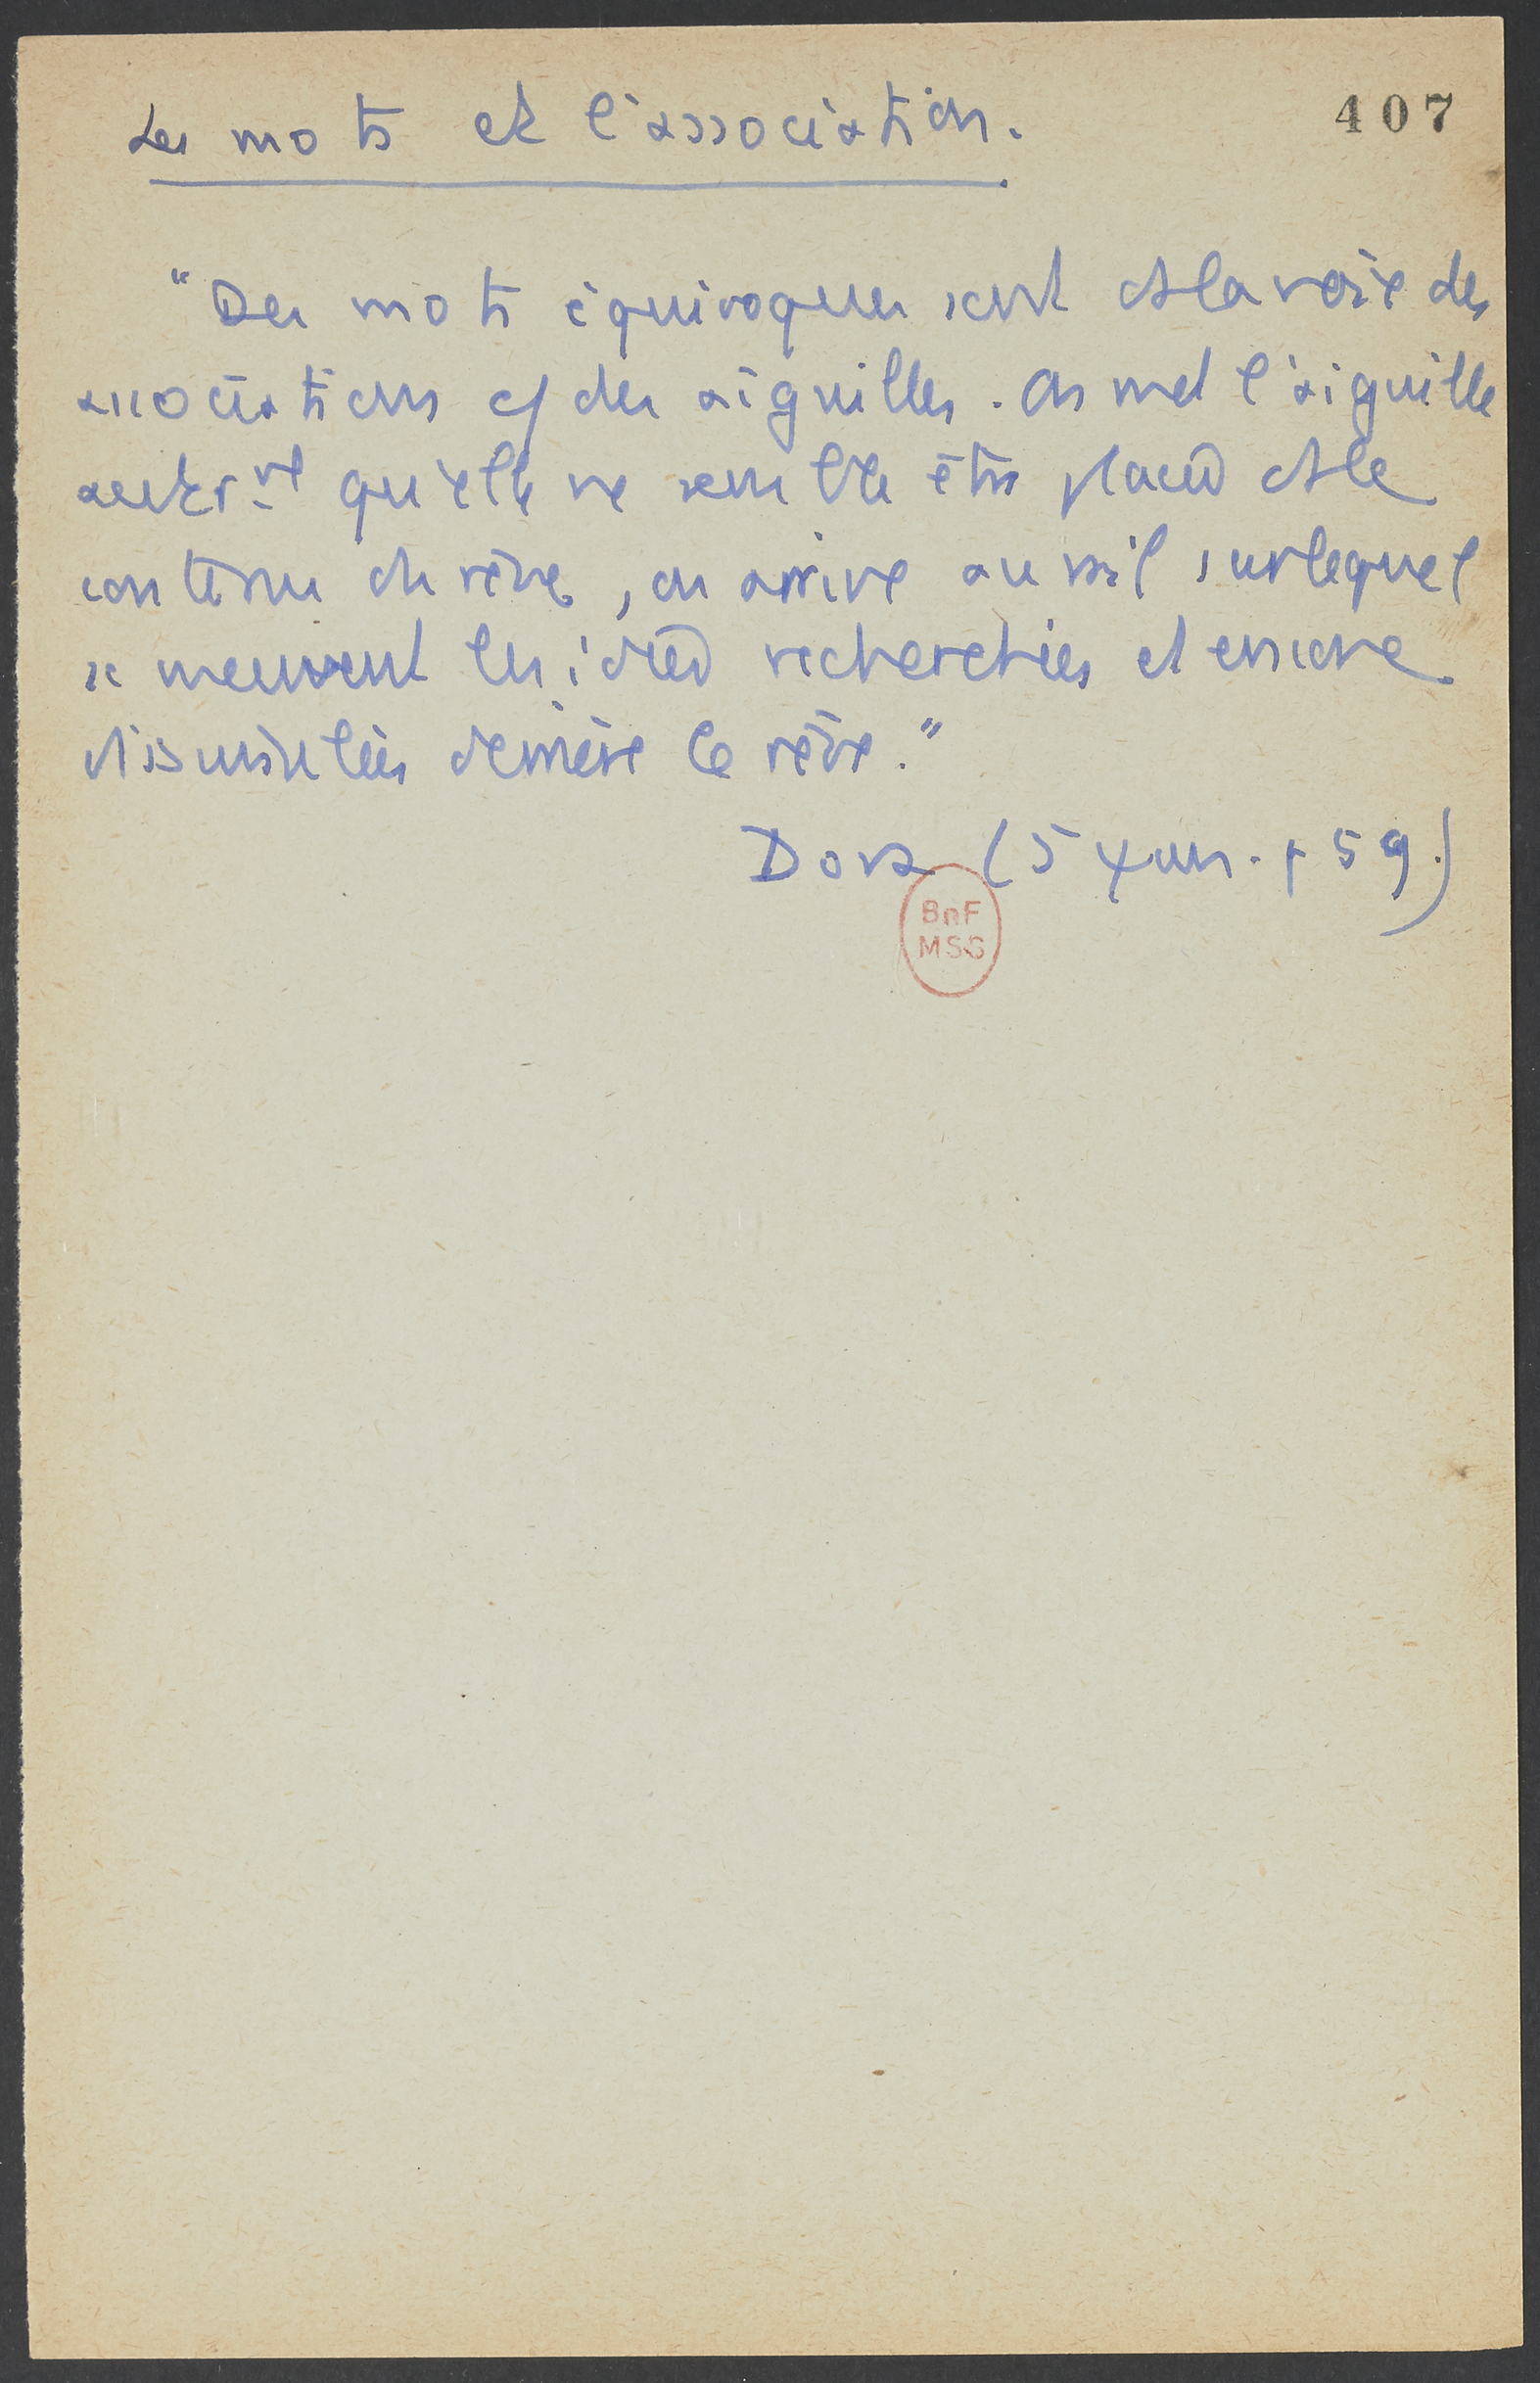 Les mots et l'association.
407
"Des mots équivoques sont ds la voie des
associations c/ des aiguilles. On met l'aiguille
autrmt qu'elle ne semble être placée ds le
contenu du rêve, on arrive au rail sur lequel
se meuvent les idées recherchées et encore
dissimulées derrière le rêve."
Dora (5 psn. p 59.)
BnF
MSS